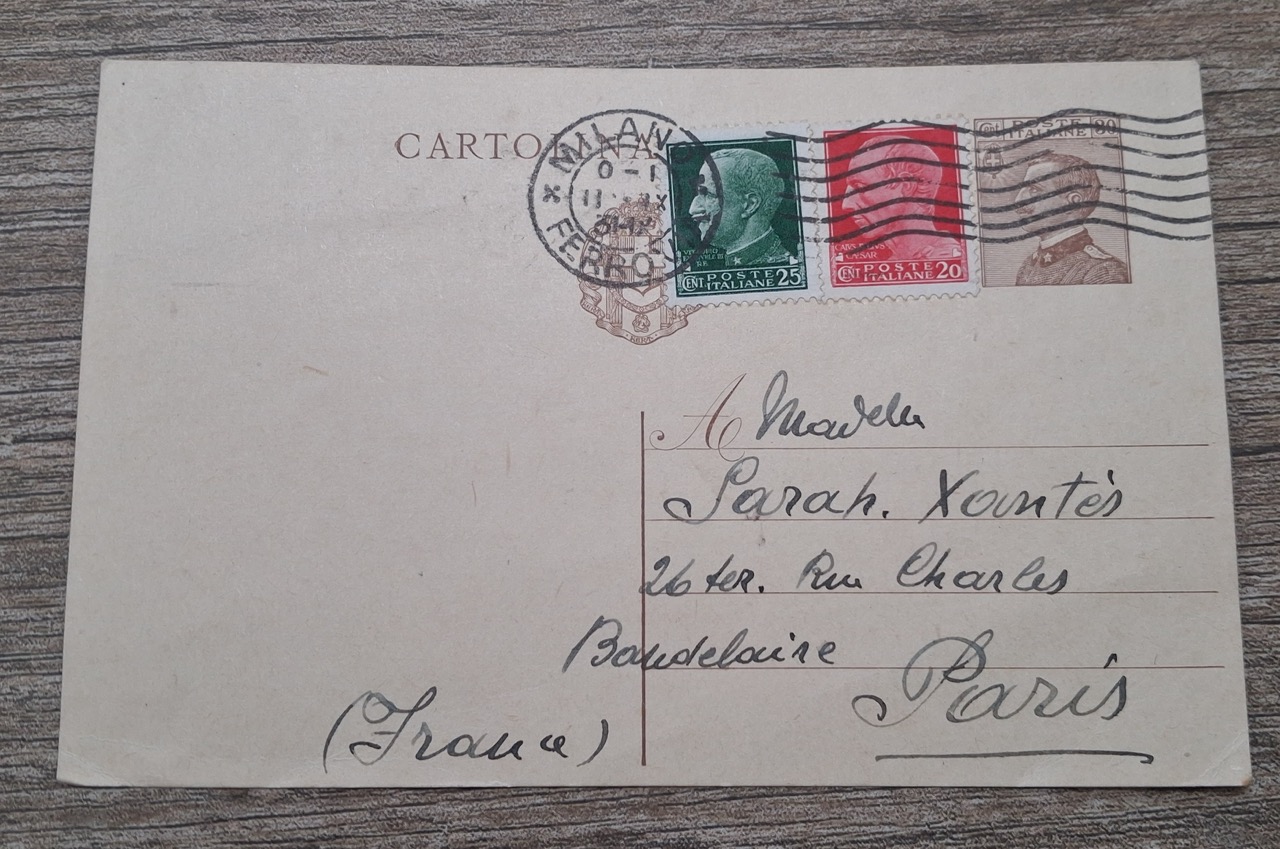 CARTOLINA
MILANO
FERROVIA
CENT POSTE ITALIANE 25
CAIVS IVLIVS
CAESAR
CENT POSTE ITALIANE 20
Cent POSTE ITALIANE 30
A
Sarah. Xantès
26 ter. Rue Charles
Baudelaire
Paris
(France)